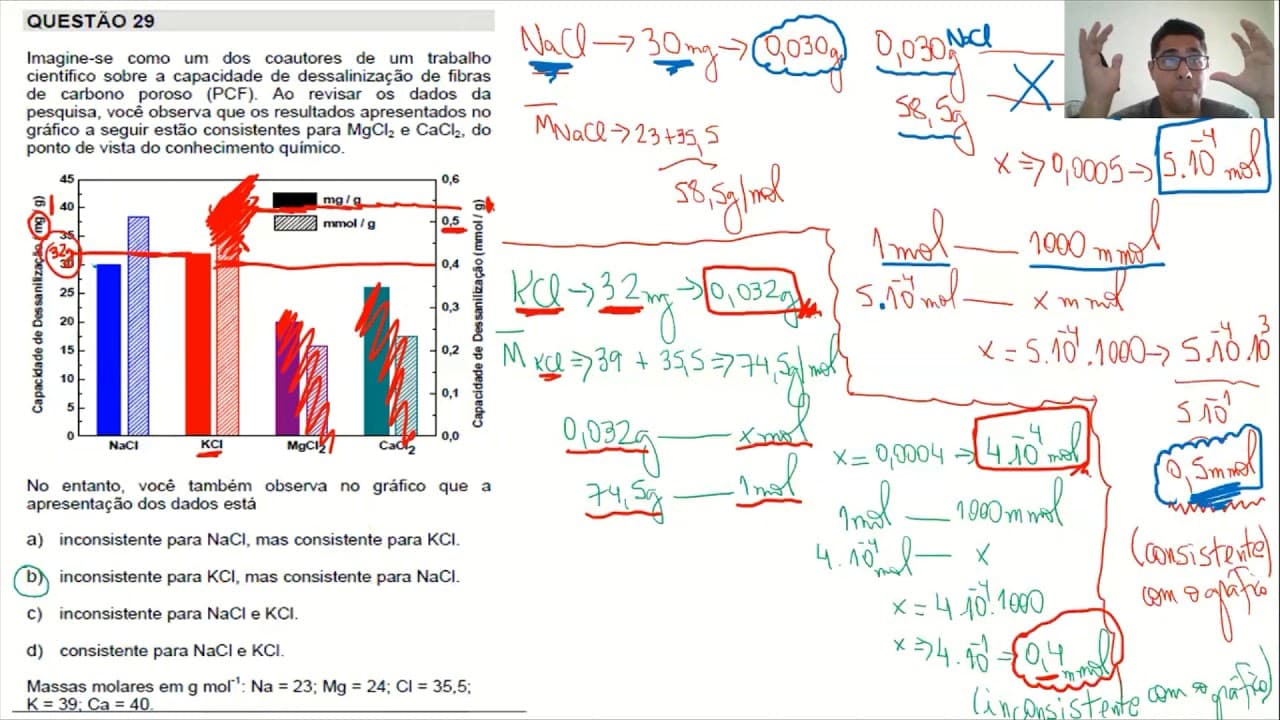 QUESTÃO 29
Imagine-se como um dos coautores de um trabalho
científico sobre a capacidade de dessalinização de fibras
de carbono poroso (PCF). Ao revisar os dados da
pesquisa, você observa que os resultados apresentados no
gráfico a seguir estão consistentes para MgCl₂ e CaCl₂, do
ponto de vista do conhecimento químico.
45
40
35
30
25
20
15
10
5
0
Capacidade de Dessanilização (mg / g)
32g
mg / g
mmol / g
0,6
0,5
0,4
0,3
0,2
0,1
0,0
Capacidade de Dessanilização (mmol / g)
NaCl
KCl
MgCl₂
CaCl₂
No entanto, você também observa no gráfico que a
apresentação dos dados está
a) inconsistente para NaCl, mas consistente para KCl.
b) inconsistente para KCl, mas consistente para NaCl.
c) inconsistente para NaCl e KCl.
d) consistente para NaCl e KCl.
Massas molares em g mol⁻¹: Na = 23; Mg = 24; Cl = 35,5;
K = 39; Ca = 40.
NaCl → 30mg → 0,030g
M NaCl → 23+35,5
58,5g/mol
0,030g NaCl
X
58,5g
x ⇒ 0,0005 → 5.10⁻⁴ mol
1mol — 1000 mmol
5.10⁻⁴ mol — x mmol
x = 5.10⁻⁴.1000 → 5.10⁻⁴.10³
5.10⁻¹
0,5mmol
(consistente)
com o gráfico
KCl → 32mg → 0,032g
M KCl ⇒ 39 + 35,5 ⇒ 74,5g/mol
0,032g — x mol
74,5g — 1mol
x = 0,0004 → 4.10⁻⁴ mol
1mol — 1000mmol
4.10⁻⁴ mol — x
x = 4.10⁻⁴.1000
x ⇒ 4.10⁻¹ ⇒ 0,4 mmol
(inconsistente com o gráfico)